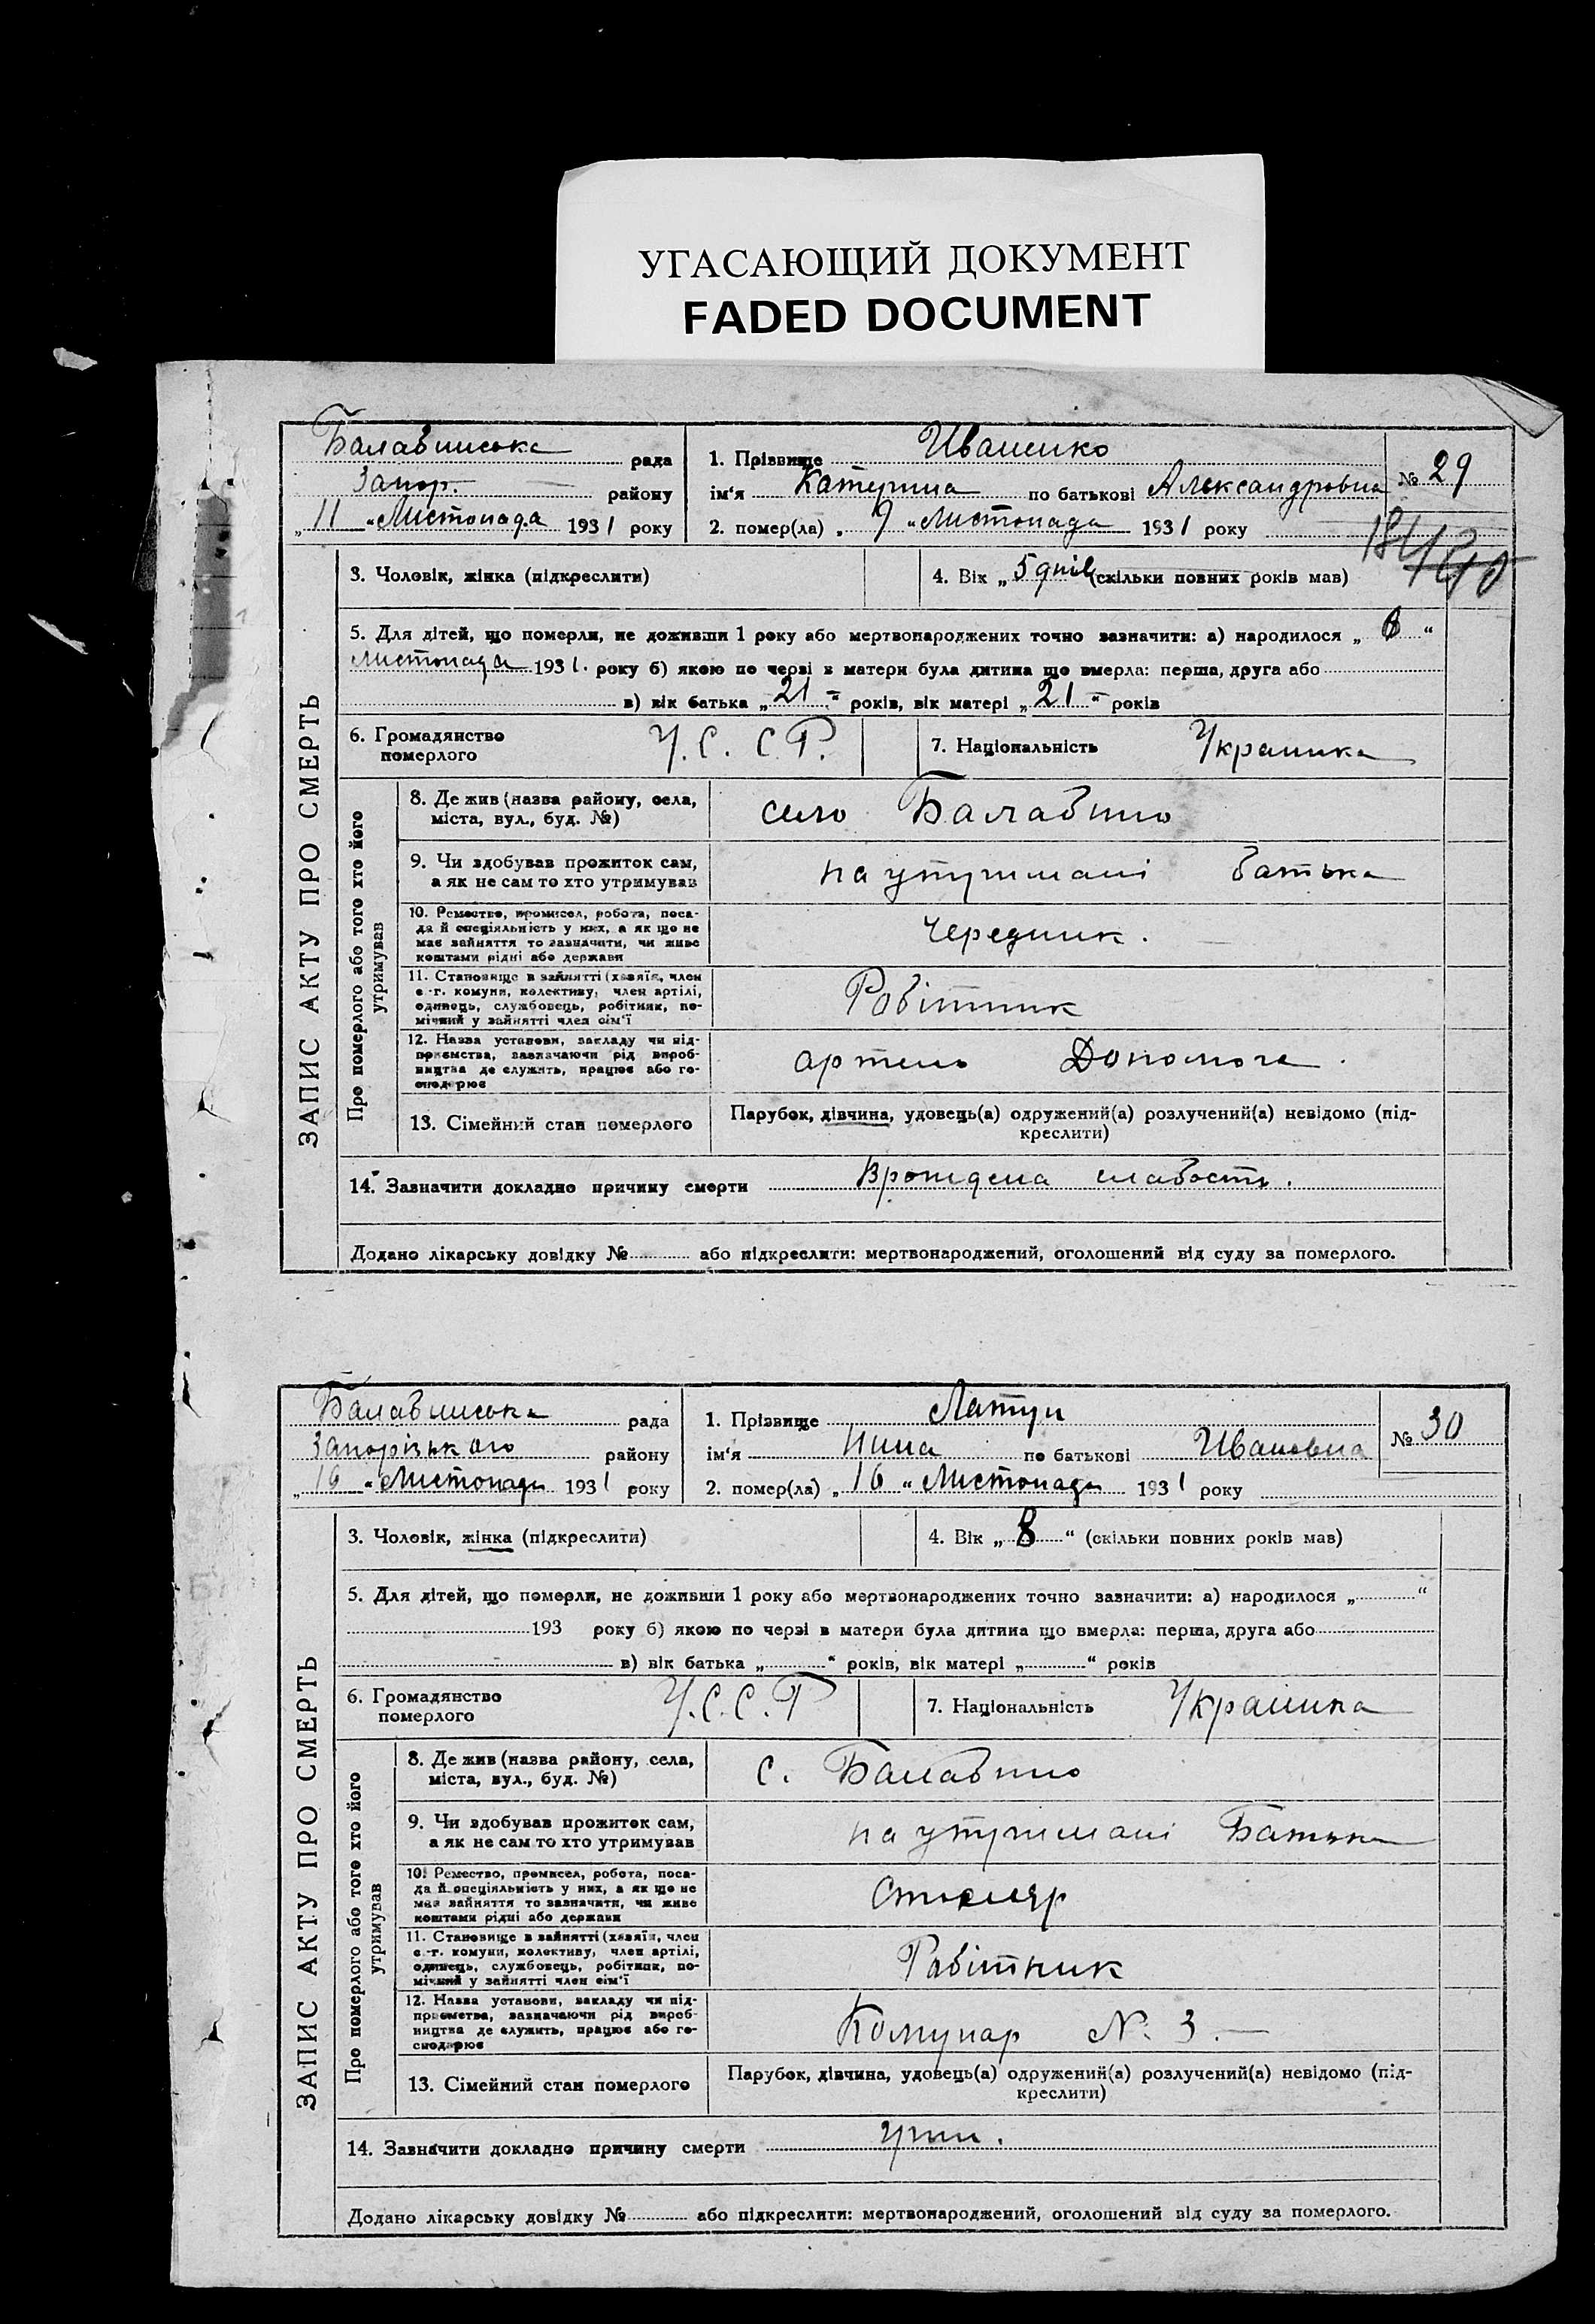 УГАСАЮЩИЙ ДОКУМЕНТ
FADED DOCUMENT
Балабинська рада
Запор. району
„11“ Листопада 1931 року
1. Прізвище Иваненко
ім‘я Катерина по батькові Александровна
№ 29
2. помер(ла) „9“ Листопада 1931 року
3. Чоловік, жінка (підкреслити)
4. Вік „5 днів (скільки повних років мав)
5. Для дітей, що померли, не доживши 1 року або мертвонароджених точно зазначити: а) народилося „ “
листопада 1931. року б) якою по черзі в матери була дитина що вмерла: перша, друга або
в) вік батька „21“ років, вік матері „21“ років
6. Громадянство
померлого
У.С.С.Р.
7. Національність Украинка
ЗАПИС АКТУ ПРО СМЕРТЬ
Про померлого або того хто його
утримував
8. Де жив (назва району, села,
міста, вул., буд. №)
село Балабино
9. Чи здобував прожиток сам,
а як не сам то хто утримував
на утримані батька
10. Ремество, промисел, робота, поса-
да й спеціяльність у них, а як що не
має зайняття то зазначити, чи живе
коштами рідні або держави
Чередник.
11. Становище в зайнятті (хазяїн, член
с.-г. комуни, колективу, член артілі,
одинець, службовець, робітник, по-
мічний у зайнятті член сім‘ї
Робітник
12. Назва установи, закладу чи під-
приємства, зазначаючи рід вироб-
ництва де служить, працює або го-
сподарює
артель Допомога.
13. Сімейний стан померлого
Парубок, дівчина, удовець(а) одружений(а) розлучений(а) невідомо (під-
креслити)
14. Зазначити докладно причину смерти Врождена слабость.
Додано лікарську довідку № або підкреслити: мертвонароджений, оголошений від суду за померлого.
Балабинська рада
Запорізького району
„16“ Листопада 1931 року
1. Прізвище Латун
ім‘я Нина по батькові Ивановна
№ 30
2. помер(ла) „16“ Листопада 1931 року
3. Чоловік, жінка (підкреслити)
4. Вік „8“ (скільки повних років мав)
5. Для дітей, що померли, не доживши 1 року або мертвонароджених точно зазначити: а) народилося „ “
193 року б) якою по черзі в матери була дитина що вмерла: перша, друга або
в) вік батька „ “ років, вік матері „ “ років
6. Громадянство
померлого
У.С.С.Р
7. Національність Украинка
ЗАПИС АКТУ ПРО СМЕРТЬ
Про померлого або того хто його
утримував
8. Де жив (назва району, села,
міста, вул., буд. №)
с. Балабино
9. Чи здобував прожиток сам,
а як не сам то хто утримував
на утримані Батька
10. Ремество, промисел, робота, поса-
да й спеціяльність у них, а як що не
має зайняття то зазначити, чи живе
коштами рідні або держави
Столяр
11. Становище в зайнятті (хазяїн, член
с.-г. комуни, колективу, член артілі,
одинець, службовець, робітник, по-
мічний у зайнятті член сім‘ї
Робітник
12. Назва установи, закладу чи під-
приємства, зазначаючи рід вироб-
ництва де служить, працює або го-
сподарює
Комунар N. 3.
13. Сімейний стан померлого
Парубок, дівчина, удовець(а) одружений(а) розлучений(а) невідомо (під-
креслити)
14. Зазначити докладно причину смерти
Додано лікарську довідку № або підкреслити: мертвонароджений, оголошений від суду за померлого.